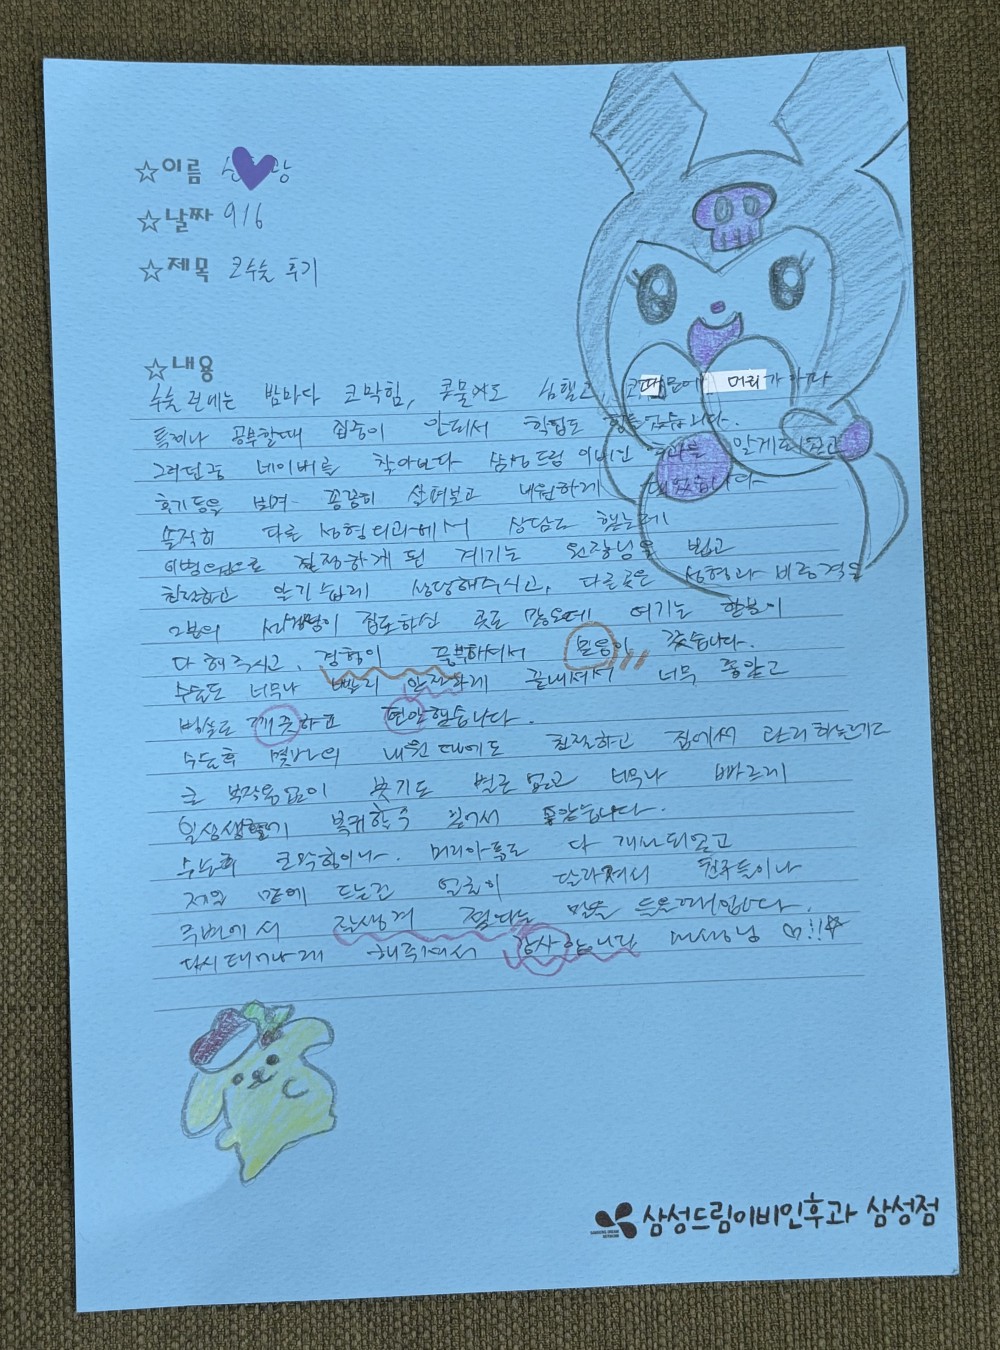 ☆이름
☆날짜 9/6
☆제목 코수술 후기
☆내용
수술 전에는 밤마다 코막힘, 콧물어도 심했고, 코때문에 머리가 아파
특히나 공부할때 집중이 안되서 학업도 힘들었습니다.
그러던중 네이버를 찾아보다 삼성드림이비인후과를 알게되었고
후기들을 보며 꼼꼼히 살펴보고 내원하게 되었습니다
솔직히 다른 성형외과에서 상담도 했는데
이병원으로 결정하게 된 계기는 원장님을 뵙고
친절하고 알기쉽게 상담해주시고, 다른곳은 성형과 비중격을
2분의 선생님이 집도하신 곳도 많은데 여기는 한분이
다 해주시고, 경험이 풍부하셔서 믿음이 갔습니다.
수술도 너무나 빨리 안전하게 끝내셔서 너무 좋았고
병실도 깨끗하고 편안했습니다.
수술후 몇번의 내원때에도 친절하고 집에서 관리하는데도
큰 부작용없이 붓기도 별로 없고 너무나 빠르게
일상생활기 복귀할수 있어서 좋았습니다.
수술후 코막힘이나. 머리아픔도 다 개선되었고
제일 맘에 드는건 얼굴이 달라져서 친구들이나
주변에서 잘생겨 졌다는 말을 들을때입니다.
다시태어나게 해주셔서 감사합니다 선생님 ♡!!☆
삼성드림이비인후과 삼성점